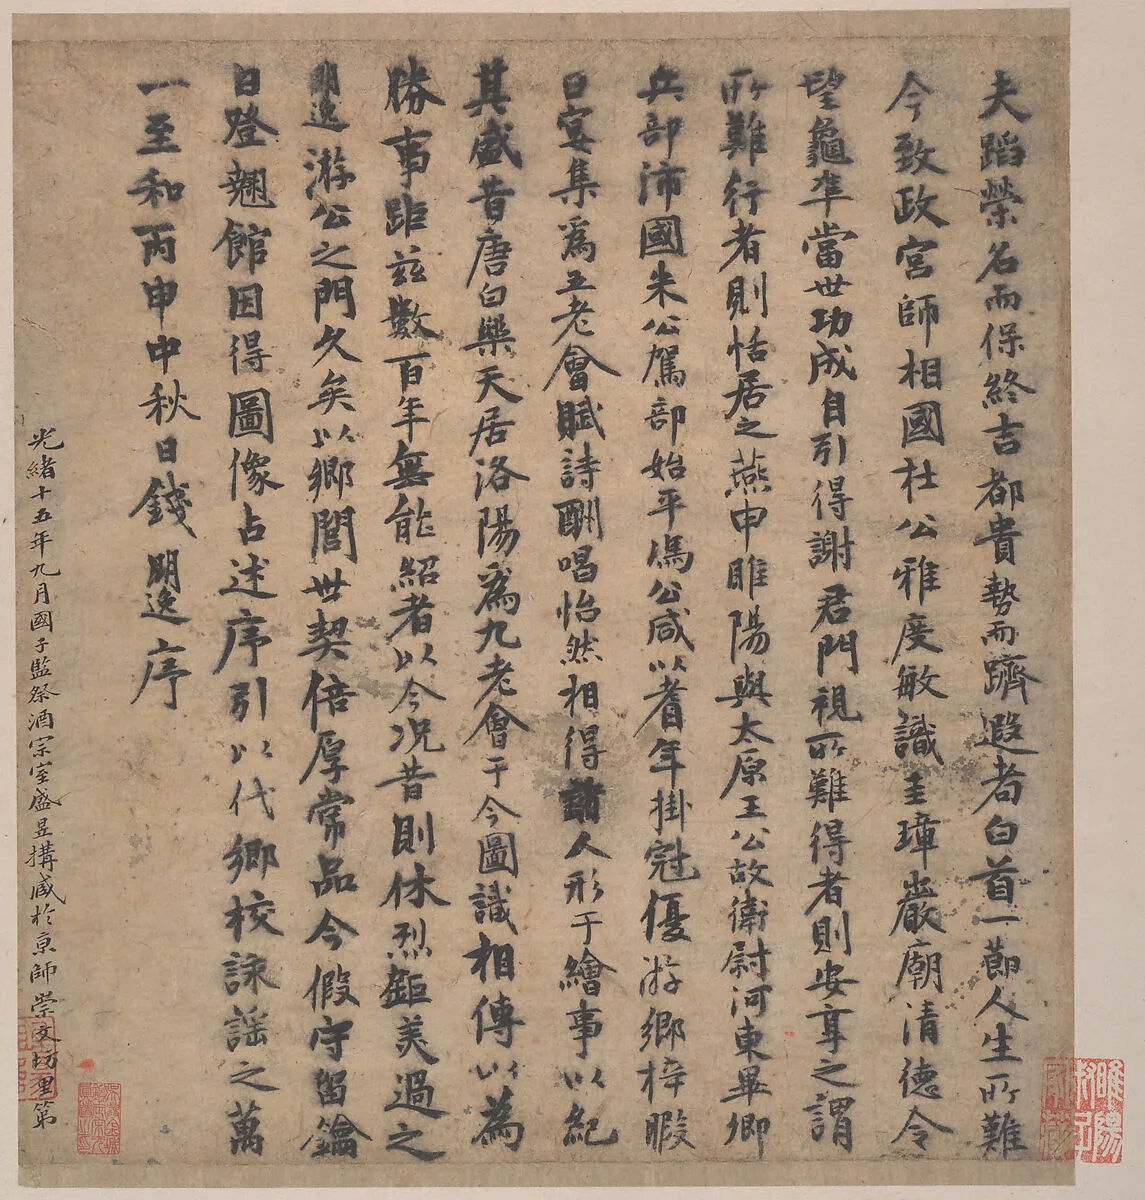 夫蹈榮名而保終吉都貴勢而躋遐耇白首一節人生所難
今致政宮師相國杜公雅度敏識圭璋巖廟清德令
望龜準當世功成自引得謝君門視所難得者則安享之謂
所難行者則恬居之燕申睢陽與太原王公故衛尉河東畢卿
兵部沛國朱公駕部始平馮公咸以耆年掛冠優游鄉梓暇
日宴集為五老會賦詩酬唱怡然相得諸人形于繪事以紀
其盛昔唐白樂天居洛陽為九老會于今圖識相傳以為
勝事距茲數百年無能紹者以今況昔則休烈鉅美過之
明逸游公之門久矣以鄉閭世契倍厚常品今假守留鑰
日登翹館因得圖像占述序引以代鄉校詠謠之萬
一至和丙申中秋日錢明逸序
光緒十五年九月國子監祭酒宗室盛昱搆臧於京師崇文坊里第